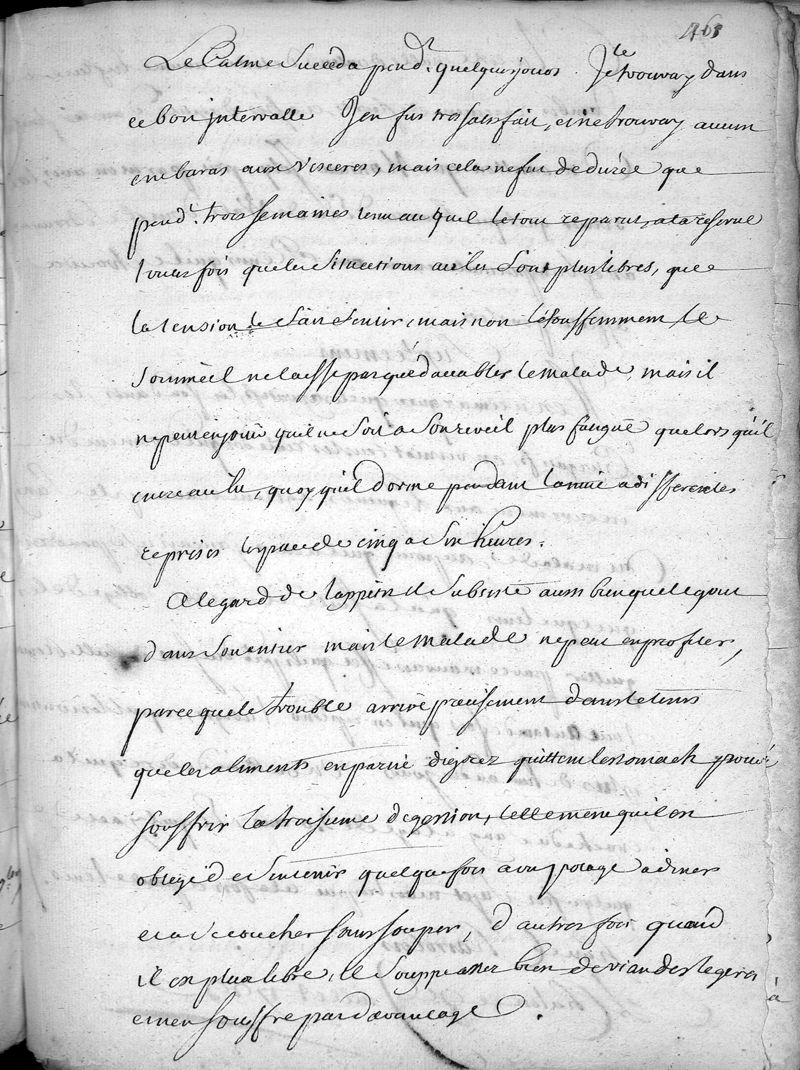 463
Le Calme succeda pend.t quelques jours. Je le trouvay dans
ce bon jntervalle J'en fus tres satisfait, et ne trouvay aucun
embaras aux visceres, mais cela ne fut de durée que
pend.t trois semaines tems auquel le tout reparut, a la reserve
toutes fois que les situations au lit sont plus libres, que
la tension se fait sentir, mais non l'etouffemment, le
sommeil ne laisse pas que d'accabler le malade, mais il
ne peut en jouir qu'il ne soit a son reveil plus fatigué que lors qu'il
entre au lit, quoy qu'il dorme pendant la nuit a differentes
reprises l'espace de cinq a six heures.
A l'egard de l'appetit il subsiste aussi bien que le gout
dans son entier mais le malade ne peut en profiter,
parce que le trouble arrive precisement dans le tems
que les aliments en partie digerez quittent l'estomach pour
souffrir la troisieme digestion, tellement qu'il est
obligé de s'en tenir quelque fois a un potage a diner
et a se coucher sans souper, d'autres fois quand
il est plus libre, il souppe assez bien de viandes legeres
et n'en souffre pas d'avantage.